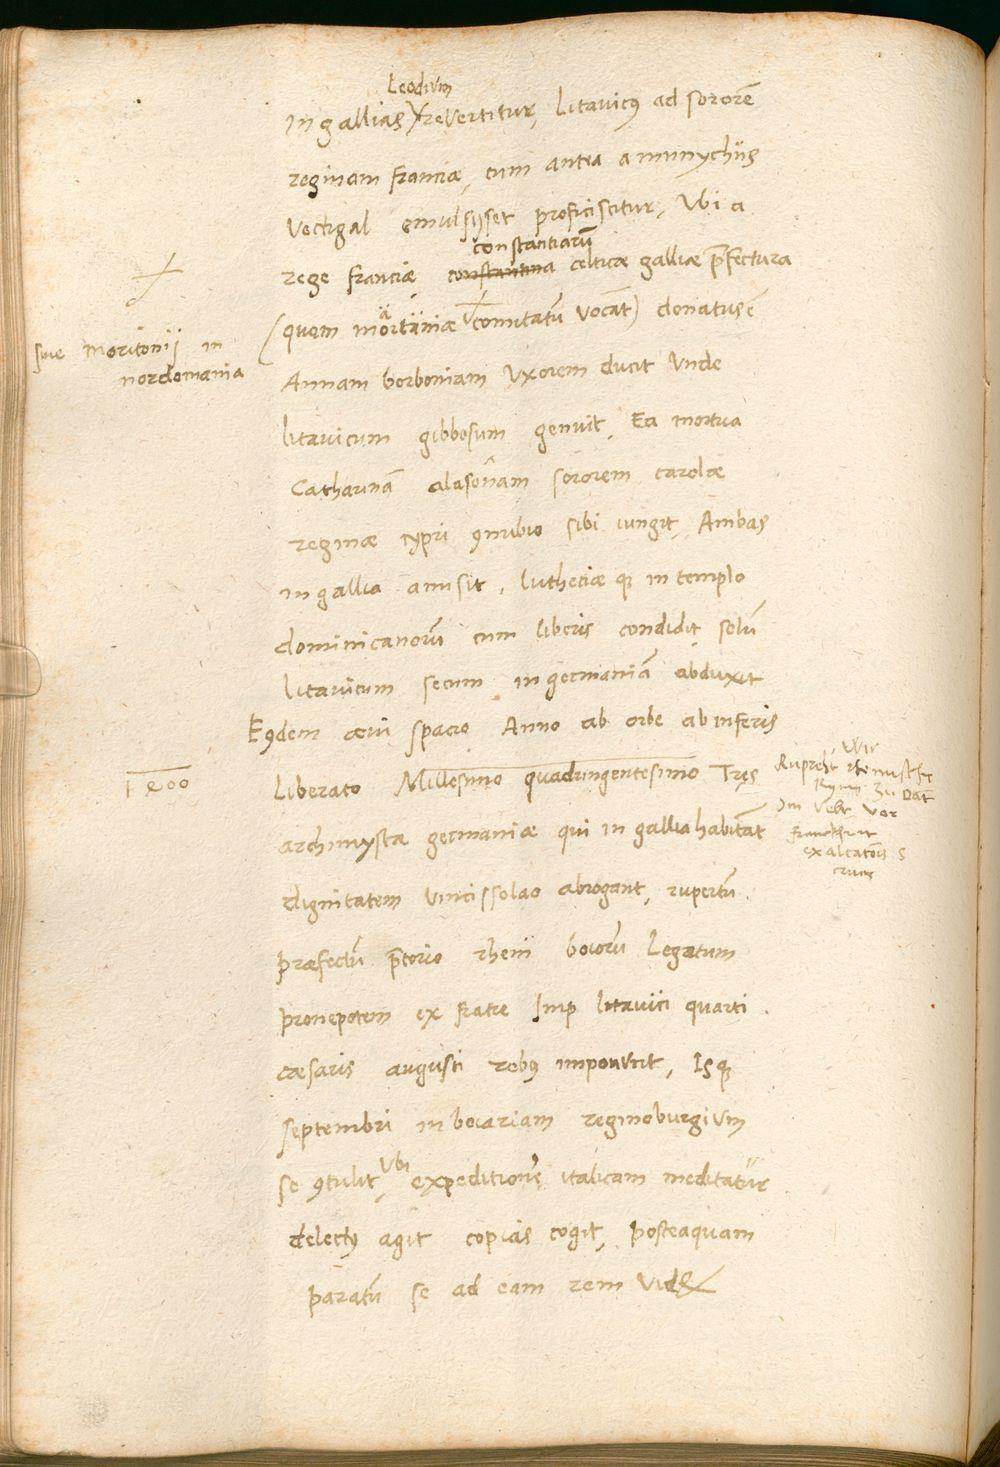 Leodium
in gallias revertitur, litavicꝰ ad sororē
reginam franciæ, cum antea a munychiis
vectigal emulsisset proficiscitur, Vbi a
constantiarū
rege franciæ constantina celticæ galliæ p̄fectura
(quem mortaniæ comitatū vocāt) donatus ē
siue moritonij in
nordomania
Annam borboniam vxorem ducit Vnde
litavicum gibbosum genuit, Ea mortua
Catharinā alasonam sororem carolæ
reginæ cypri ꝯnubio sibi iungit, Ambas
in gallia amisit, lutheciæ qꝫ in templo
dominicanorū cum liberis condidit solū
litavicum secum in germaniā abduxit
Eꝯdem ævi spacio Anno ab orbe ab inferis
1400
liberato Millesimo quadringentesimo Tres
Wir
Ruprecht
zu
Im Veldt vor
franckfurt
exaltatōis S
crucis
archimystæ germaniæ qui in gallia habitāt
dignitatem vincisslao abrogant, rupertū
præfectū p̄torio rheni boiorū legatum
pronepotem ex fratre Imp litavici quarti
cæsaris augusti rebꝰ imponunt, Is qꝫ
septembri in boiariam reginoburgium
se ꝯtulit, Vbi expeditionē italicam meditatur
delectꝰ agit copias cogit, posteaquam
paratū se ad eam rem videt